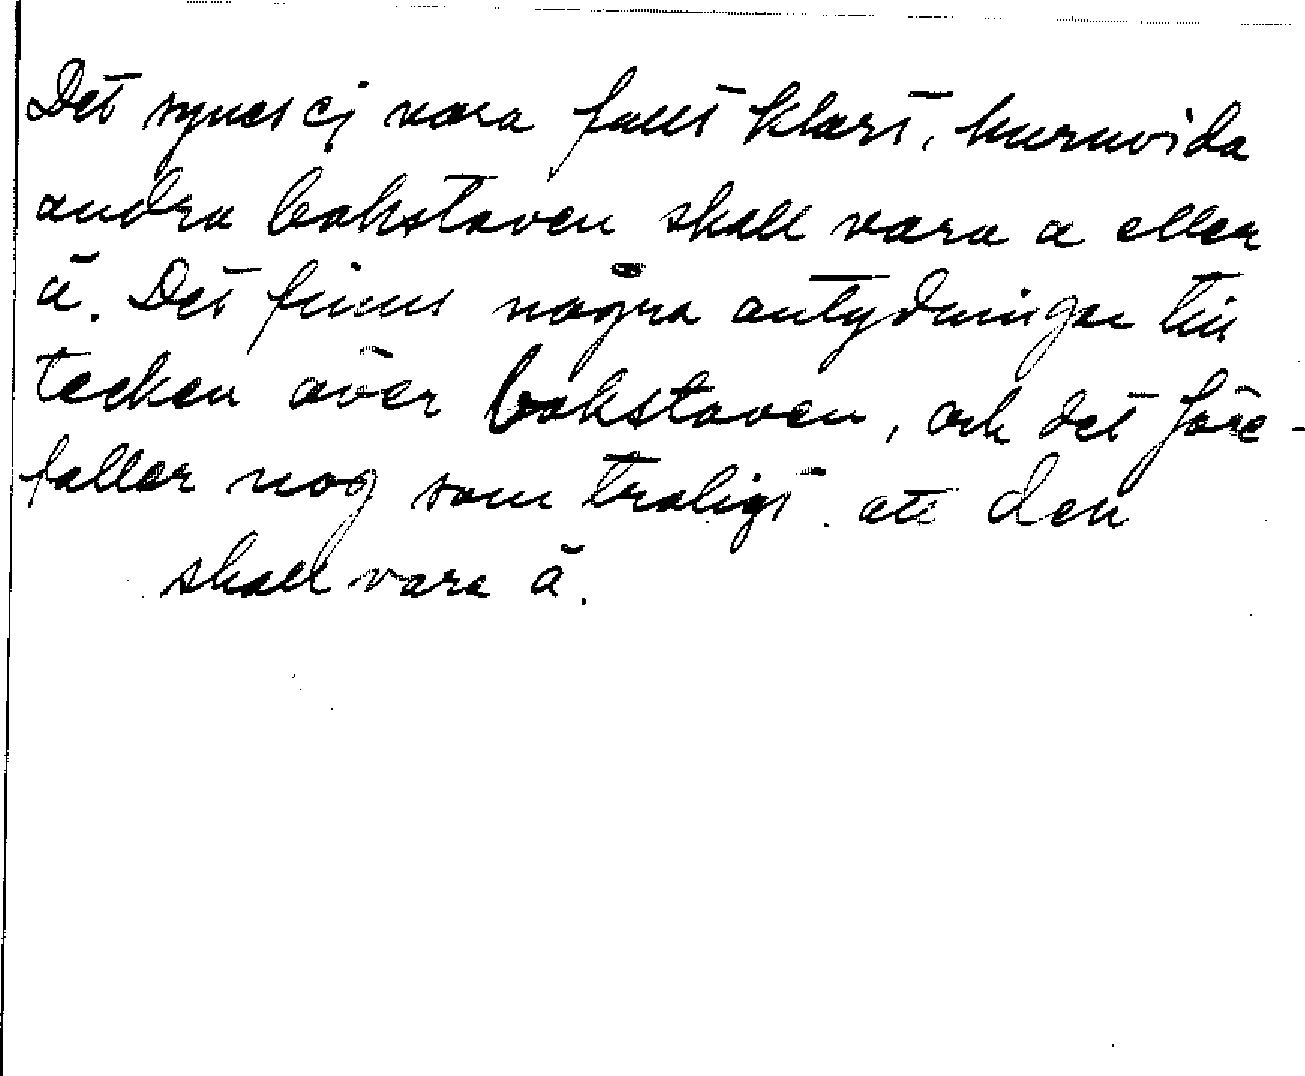 Det synes ej vara fullt klart, huruvida
andra bokstaven skall vara a eller
ä. Det finns några antydningar till
tecken över bokstaven, och det före-
faller nog som troligt att den
skall vara ä.